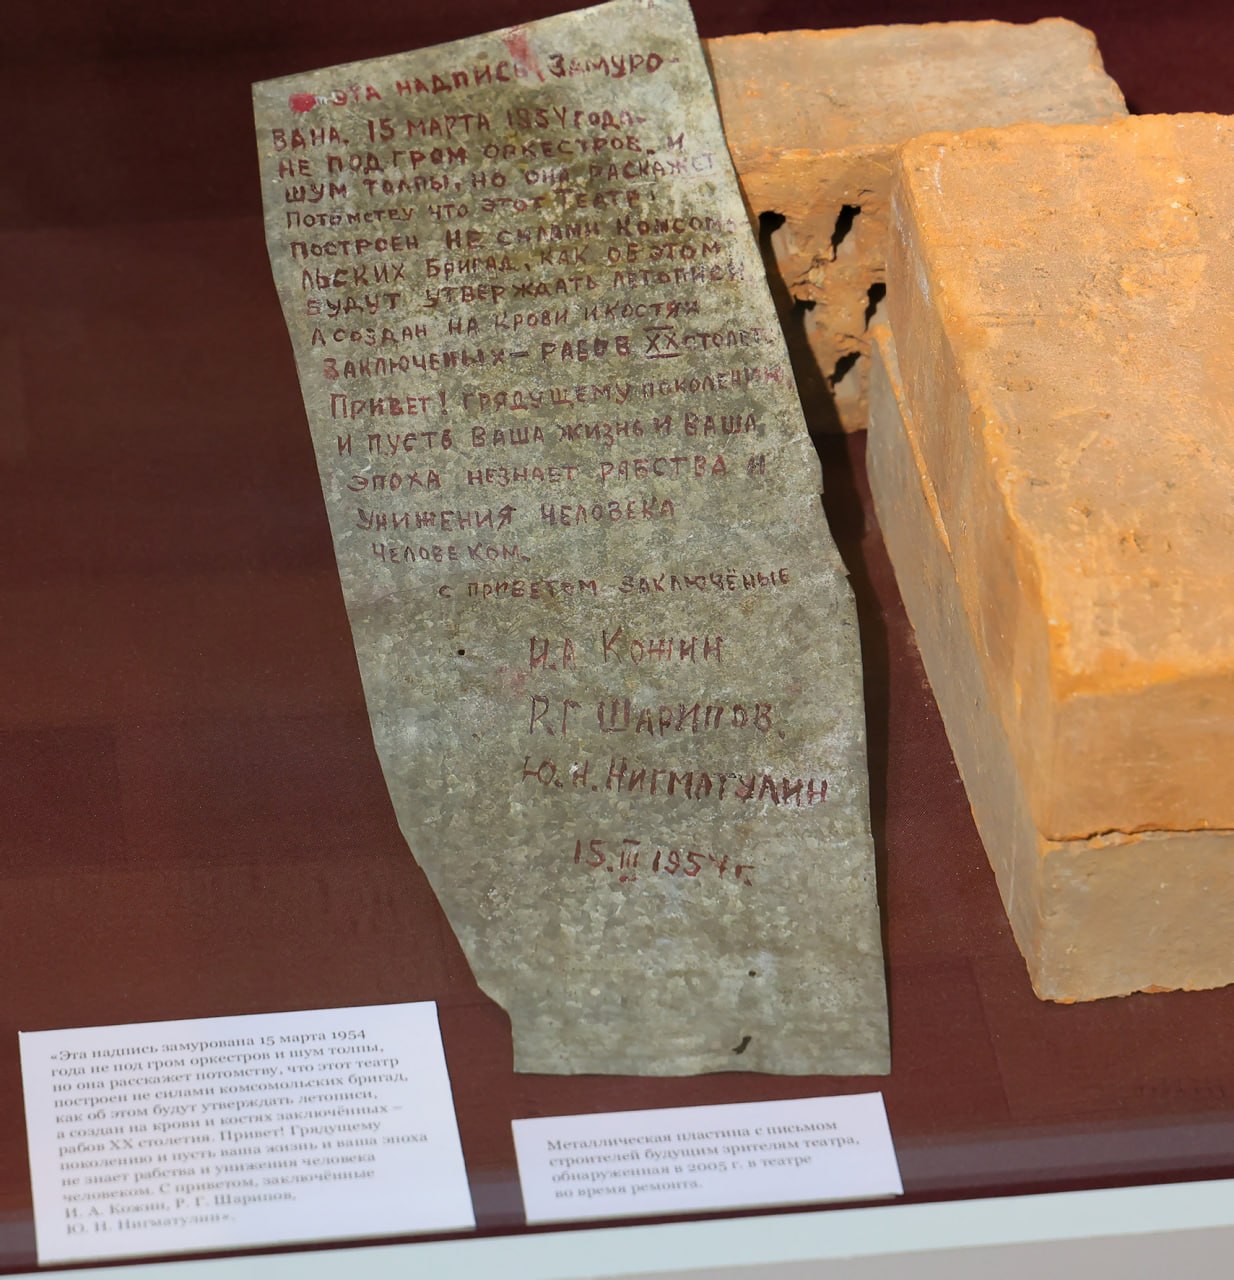 "ЭТА НАДПИСЬ ЗАМУРО-
ВАНА. 15 МАРТА 1954 ГОДА.
НЕ ПОД ГРОМ ОРКЕСТРОВ. И
ШУМ ТОЛПЫ, НО ОНА РАСКАЖЕТ
ПОТОМСТВУ ЧТО ЭТОТ ТЕАТР!
ПОСТРОЕН НЕ СИЛАМИ КОМСОМ-
ЛЬСКИХ БРИГАД, КАК ОБ ЭТОМ
БУДУТ УТВЕРЖДАТЬ ЛЕТОПИСИ
А СОЗДАН НА КРОВИ И КОСТЯХ
ЗАКЛЮЧЕНЫХ — РАБОВ XX СТОЛЕТ.
ПРИВЕТ! ГРЯДУЩЕМУ ПОКОЛЕНИЮ,
И ПУСТЬ ВАША ЖИЗНЬ И ВАША
ЭПОХА НЕЗНАЕТ РАБСТВА И
УНИЖЕНИЯ ЧЕЛОВЕКА
ЧЕЛОВЕКОМ.
С ПРИВЕТОМ ЗАКЛЮЧЁНЫЕ
И.А КОЖИН
Р.Г ШАРИПОВ.
Ю.Н. НИГМАТУЛИН
15.III 1954 г.
«Эта надпись замурована 15 марта 1954
года не под гром оркестров и шум толпы,
но она расскажет потомству, что этот театр
построен не силами комсомольских бригад,
как об этом будут утверждать летописи,
а создан на крови и костях заключённых —
рабов XX столетия. Привет! Грядущему
поколению и пусть ваша жизнь и ваша эпоха
не знает рабства и унижения человека
человеком. С приветом, заключённые
И. А. Кожин, Р. Г. Шарипов,
Ю. Н. Нигматулин».
Металлическая пластина с письмом
строителей будущим зрителям театра,
обнаруженная в 2005 г. в театре
во время ремонта.